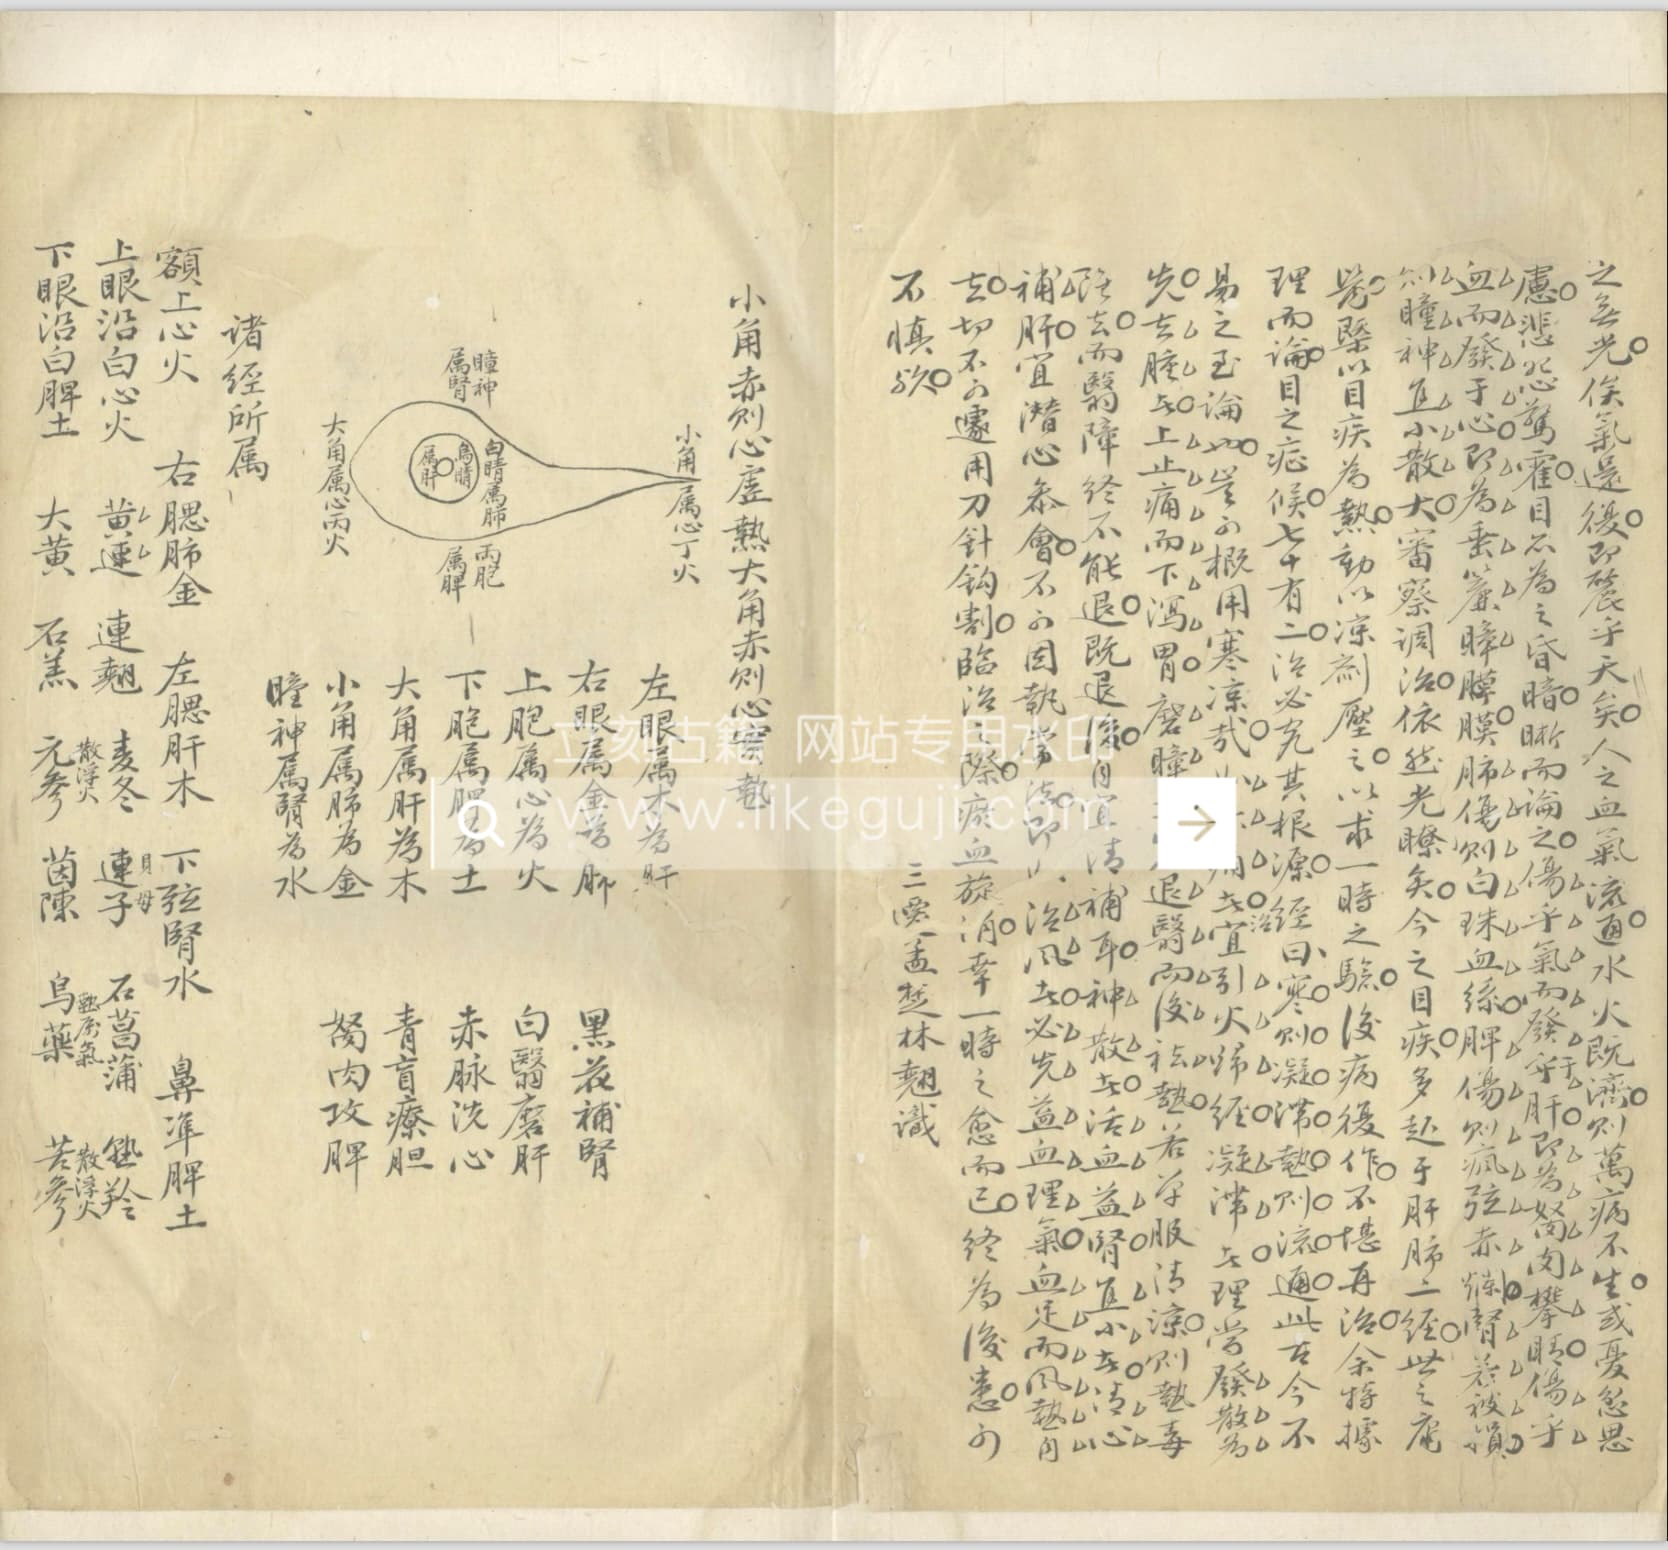 之無光俟氣還復即麗乎天矣人之血氣流通水火既濟則萬病不生或憂忽思
慮悲怒驚霍目而為之昏暗晰而論之傷乎氣而發乎于肝即為努肉攀睛傷乎
血而發于心即為垂簾瞕膜肺傷則白珠血絲脾傷則瘋弦赤爛腎若被損
則瞳神直小散大審察調治依然光瞭矣今之目疾多起于肝肺二經世之庸
醫槩以目疾為熱動以凉劑壓之以求一時之驗後病復作不堪再治余特據
理而論目之症候七十有二治必究其根源經曰寒則凝滯熱則流通此古今不
易之至論也豈可概用寒凉哉 宜引火歸經凝滯者理當發散為
先去腫者上止痛而下瀉胃磨瞕 退翳而後祛熱若早服清凉則熱毒
雖去而翳障終不能退既退後自宜清補耳神散者活血益腎直小者清心
補肝宜潛心參會不可固執常 即 治風者必先益血理氣血足而風熱自
去切不可遽用刀針鈎割臨治之際瘀血旋消幸一時之愈而已終為後患可
不慎歟
三 孟楚林翹識
小角赤則心虛熱大角赤則心實熱
小角屬心丁火
瞳神屬腎
白睛屬肺
烏睛屬肝
兩胞屬脾
大角屬心丙火
左眼屬木為肝
右眼屬金為肺
上胞屬心為火
下胞屬脾為土
大角屬肝為木
小角屬肺為金
瞳神屬腎為水
黑花補腎
白翳磨肝
赤脉洗心
青盲療胆
努肉攻脾
诸經所属
額上心火 右腮肺金 左腮肝木 下弦腎水 鼻準脾土
上眼沿白心火 黄連 連翹 麦冬 連子 貝母 石菖蒲 羚
下眼沿白脾土 大黄 石羔 元參 散浮火 茵陳 烏藥 氣 苦參 散浮火
立刻古籍 网站专用水印
www.likeguji.com